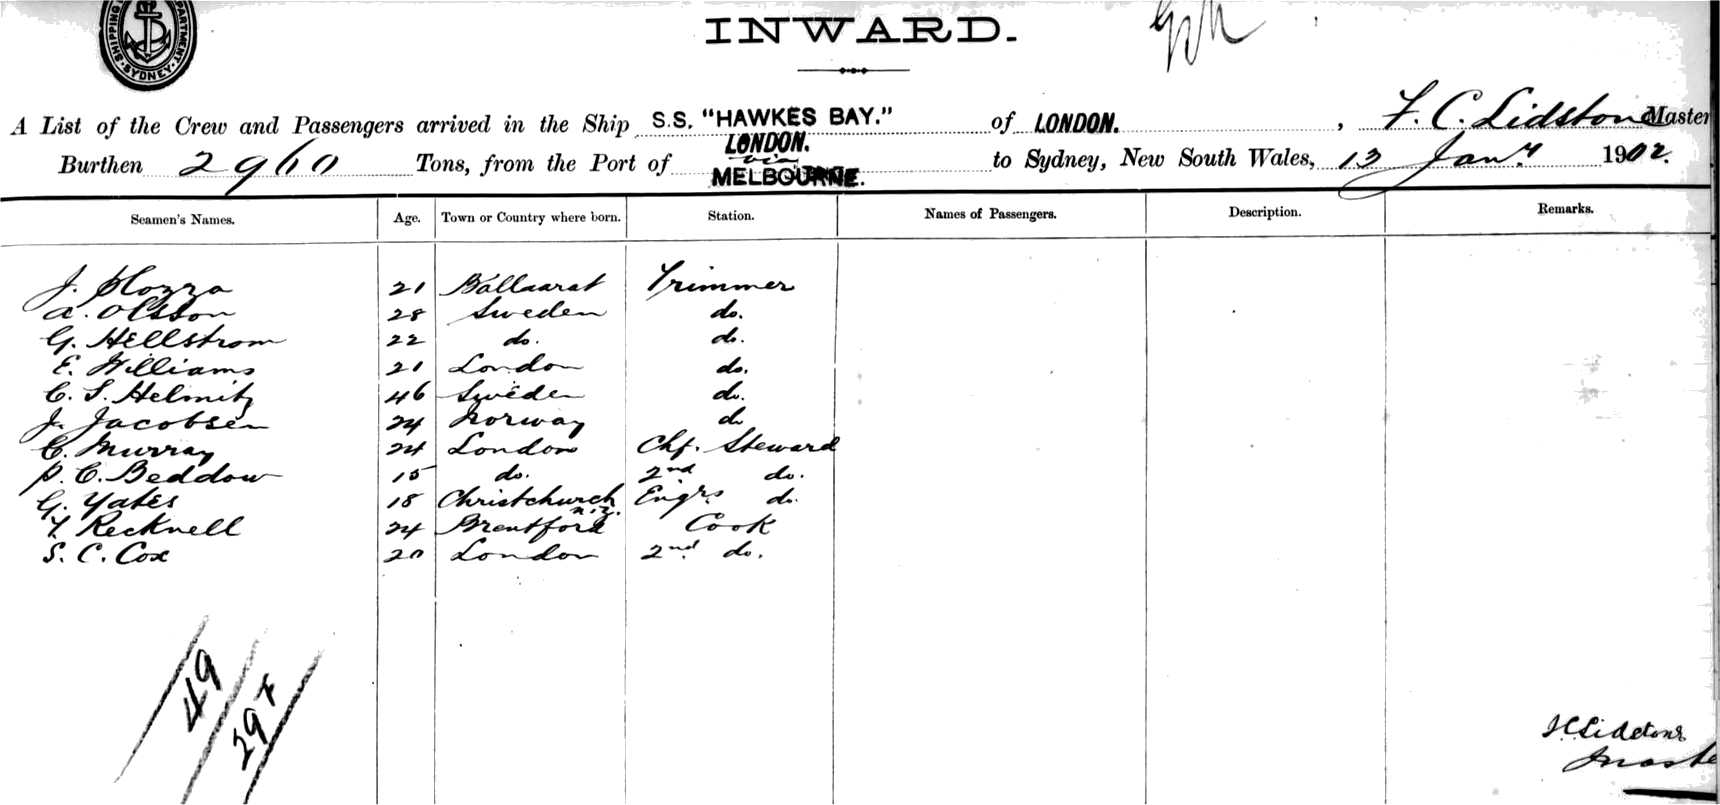 SHIPPING DEPARTMENT. SYDNEY.
INWARD.
A List of the Crew and Passengers arrived in the Ship S.S. "HAWKES BAY." of LONDON. , F. C. Lidstone Master
Burthen 2960 Tons, from the Port of LONDON. via MELBOURNE. to Sydney, New South Wales, 13 Jany 1902.
Seamen's Names. Age. Town or Country where born. Station. Names of Passengers. Description. Remarks.
J. 21 Ballaarat Trimmer
A. Olsson 28 Sweden do.
G. Hellstrom 22 do. do.
E. Williams 21 London do.
C. S. Helmitz 46 Sweden do.
J. Jacobsen 24 Norway do
C. Murray 24 London Chf. Steward
P. C. Beddow 15 do. 2nd do.
G. Yates 18 Christchurch N.Z. Engrs do.
F. Recknell 24 Brentford Cook
S. C. Cox 20 London 2nd do.
49
297
F C Lidstone
Maste